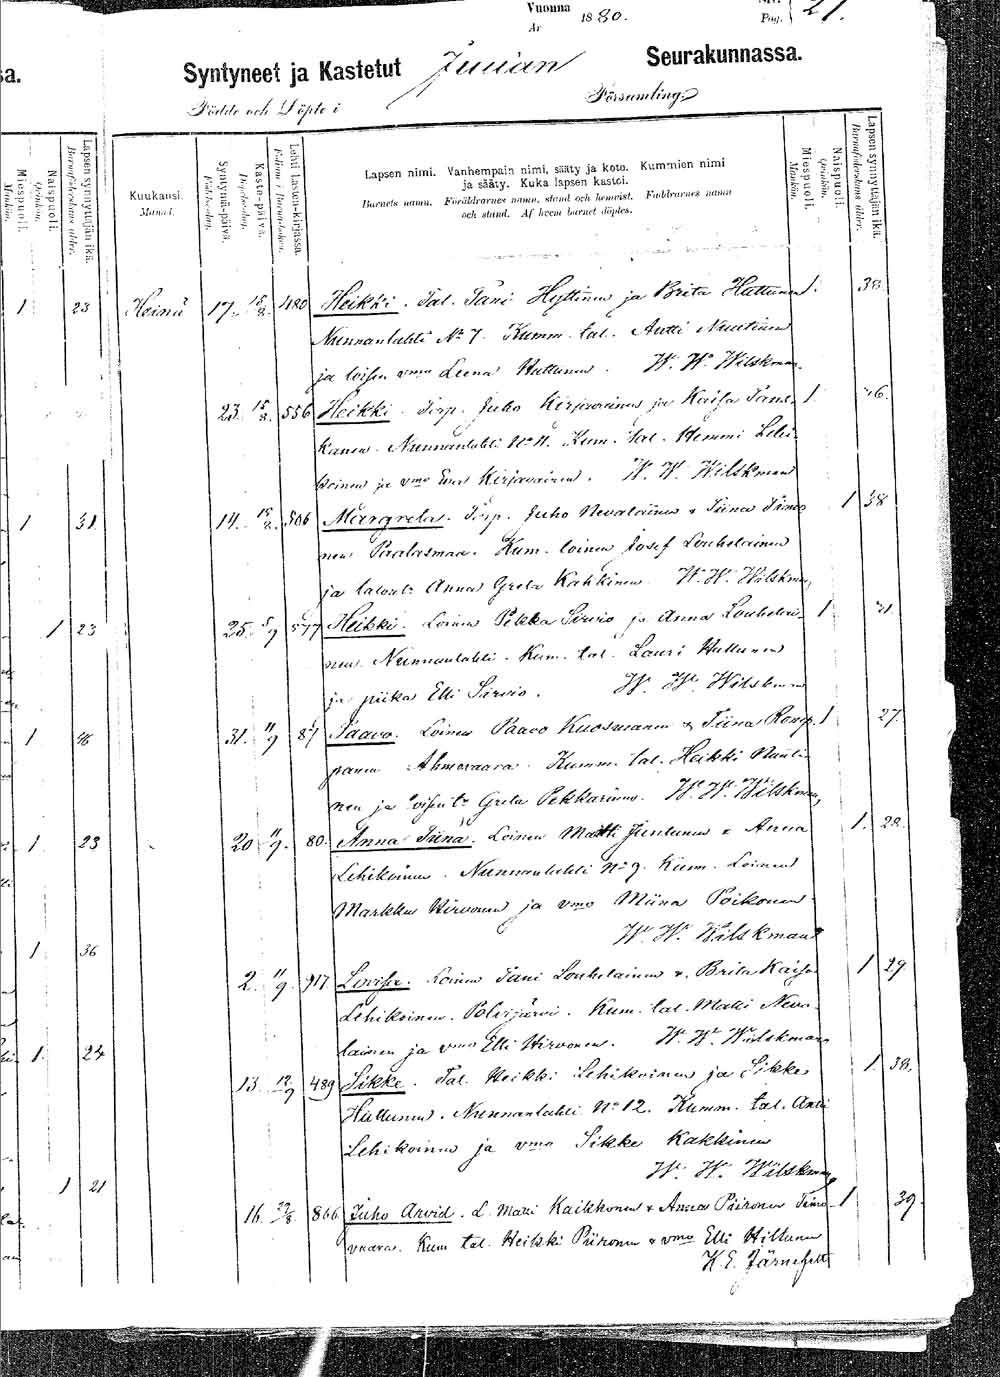 Vuonna 1880.
År
Pag. 21.
Syntyneet ja Kastetut Juuan Seurakunnassa.
Födde och Döpte i Församling.
sa.
Lapsen synnyttäjän ikä.
Barnaföderskans ålder.
Naispuoli.
Qvinkön.
Miespuoli.
Mankön.
Kuukausi.
Månad.
Syntymä-päivä.
Födelsedag.
Kaste-päivä.
Dopelsedag.
Lehti Lasten-kirjassa.
Folium i Barnaboken.
Lapsen nimi. Vanhempain nimi, sääty ja koto. Kummien nimi
ja sääty. Kuka lapsen kastoi.
Barnets namn. Föräldrarnes namn, stånd och hemvist. Faddrarnes namn
och stånd. Af hvem barnet döptes.
Miespuoli.
Mankön.
Naispuoli.
Qvinkön.
Lapsen synnyttäjän ikä.
Barnaföderskans ålder.
1 23
Heinä 17. 15/8. 480 Heikki. Tal. Tani Hyttinen ja Brita Hattunen 1. 38.
Nunnanlahti No 7. Kumm. tal. Antti Nuutinen
ja loisen vmo Leena Hattunen. W. W. Wilskman.
23. 15/8. 556 Heikki. Torp. Juho Kirjavainen ja Kaisa Tans- 1
kanen. Nunnanlahti No 11. Kum. tal. Hemmi Lehi-
koinen ja vmo Eva Kirjavainen. W. W. Wilskman
1 31.
14. 15/8. 506 Margreta. Torp. Juho Nevalainen & Tiina Timo- 1 38
nen Paalasmaa. Kum. loinen Josef Louhelainen
ja talont. Anna Greta Kakkinen. W. W. Wilskman,
1 23
25. 5/9 577 Heikki. Loinen Pekka Sirvio ja Anna Louhelai- 1
nen. Nunnanlahti. Kum. tal. Lauri Hattunen
ja piika Elli Sirvio. W. W. Wilskman
1
31. 11/9 87 Paavo. Loinen Paavo Kuosmanen & Tiina Romp- 1 27.
panen Ahmovaara. Kumm. tal. Heikki
nen ja Greta Pekkarinen. W. W. Wilskman,
1 23
20 11/9. 80. Anna Tiina. Loinen Matti Juntunen & Anna 1. 28.
Lehikoinen. Nunnanlahti No 9. Kum. Loinen
Markku Hirvonen ja vmo Miina Poikonen
W. W. Wilskman
1 36
2. 11/9. 917. Lovisa. Loinen Tani Louhelainen & Brita Kaisa 1 29.
Lehikoinen. Polvijärvi. Kum. tal. Matti Neva-
lainen ja vmo Elli Hirvonen. W. W. Wilskman
1. 24
13. 12/9 489 Sikke. Tal. Heikki Lehikoinen ja Sikke 1. 38.
Hattunen. Nunnanlahti No 12. Kumm. tal. Antti
Lehikoinen ja vmo Sikke Kakkinen
W. W. Wilskman,
1 21
16. 22/8. 866 Juho Arvid. L. Matti Kaikkonen & Anna Piironen Timo- 1 39.
vaara. Kum tal. Heikki Piironen & vmo Elli Hiltunen
K. E. Järnefelt